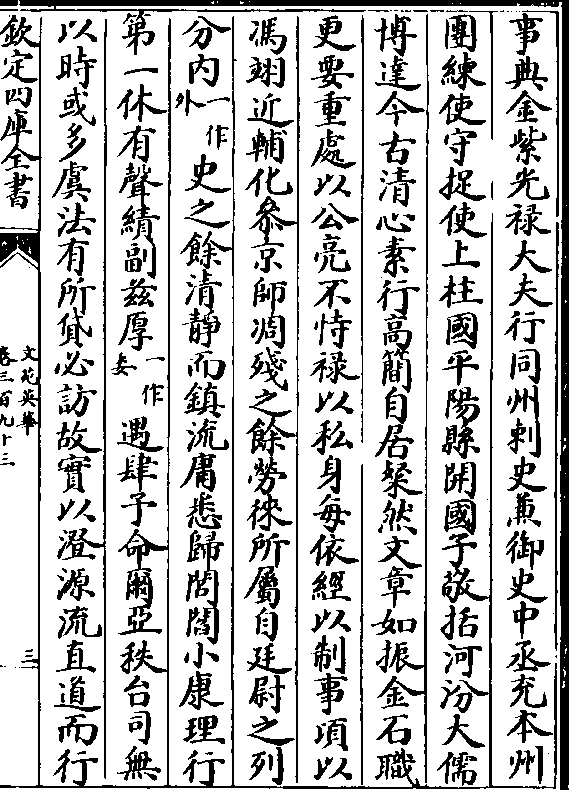 事典金紫光禄大夫行同州刺史兼御史中丞充本州
團練使守捉使上柱國平陽縣開國子敬括河汾大儒
博達今古清心素行高簡自居粲然文章如振金石職
更要重處以公亮不恃禄以私身每依經以制事項以
馮翊近輔化叅京師凋殘之餘勞徠所屬自廷尉之列
分内一作外史之餘清靜而鎮流庸悉歸閭閻小康理行
第一休有聲績副兹厚一作委遇肆予命爾亞秩台司無
以時或多虞法有所貸必訪故實以澄源流直道而行
欽定四庫全書
文苑英華
卷三百九十三
三